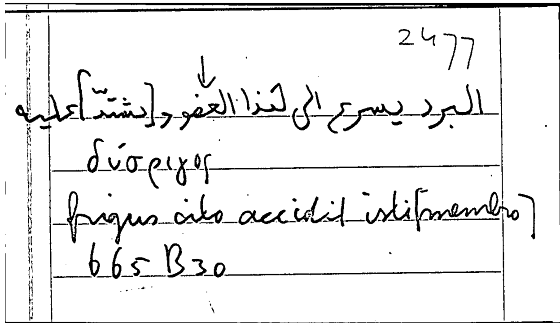 2477
البرد يسرع الى هذا العضو و[يشتدّ] عليه
δύσριγος
frigus cito accidit isti [membro]
665 B 30